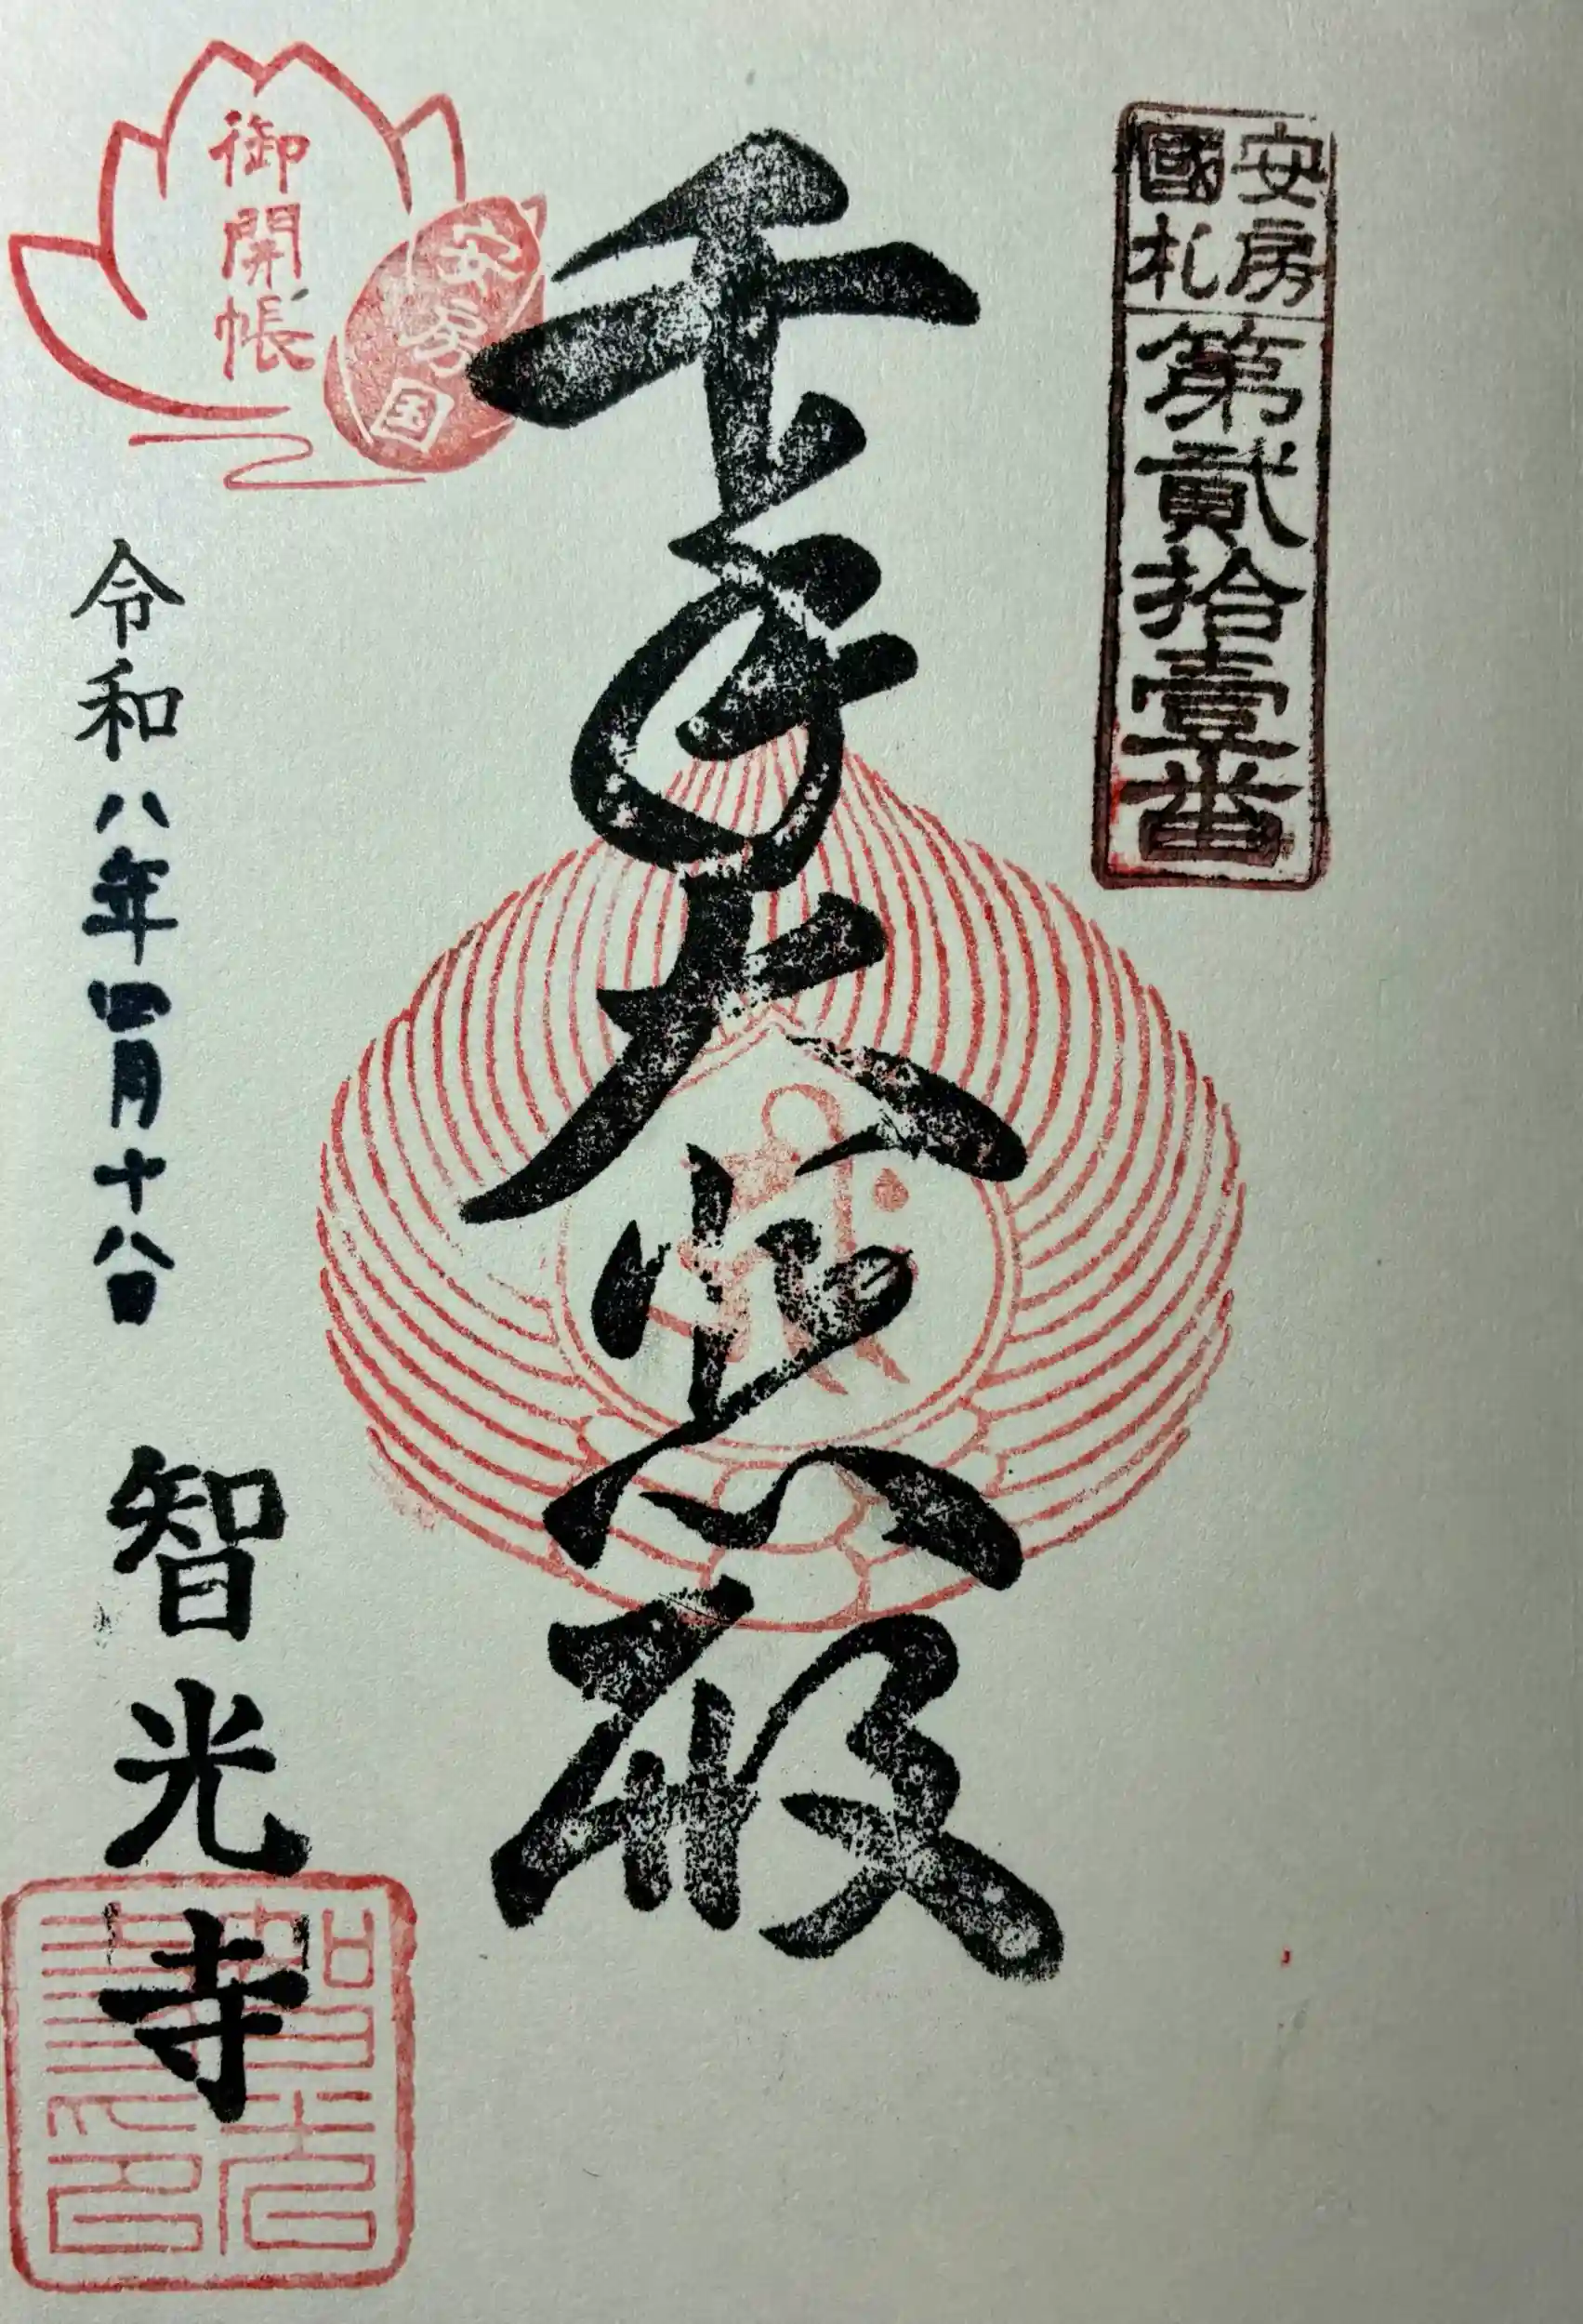 安房
國札
第貳拾壹番
千手大悲殿
御開帳
安房国
令和八年四月十八日
智光寺
智光
寺印